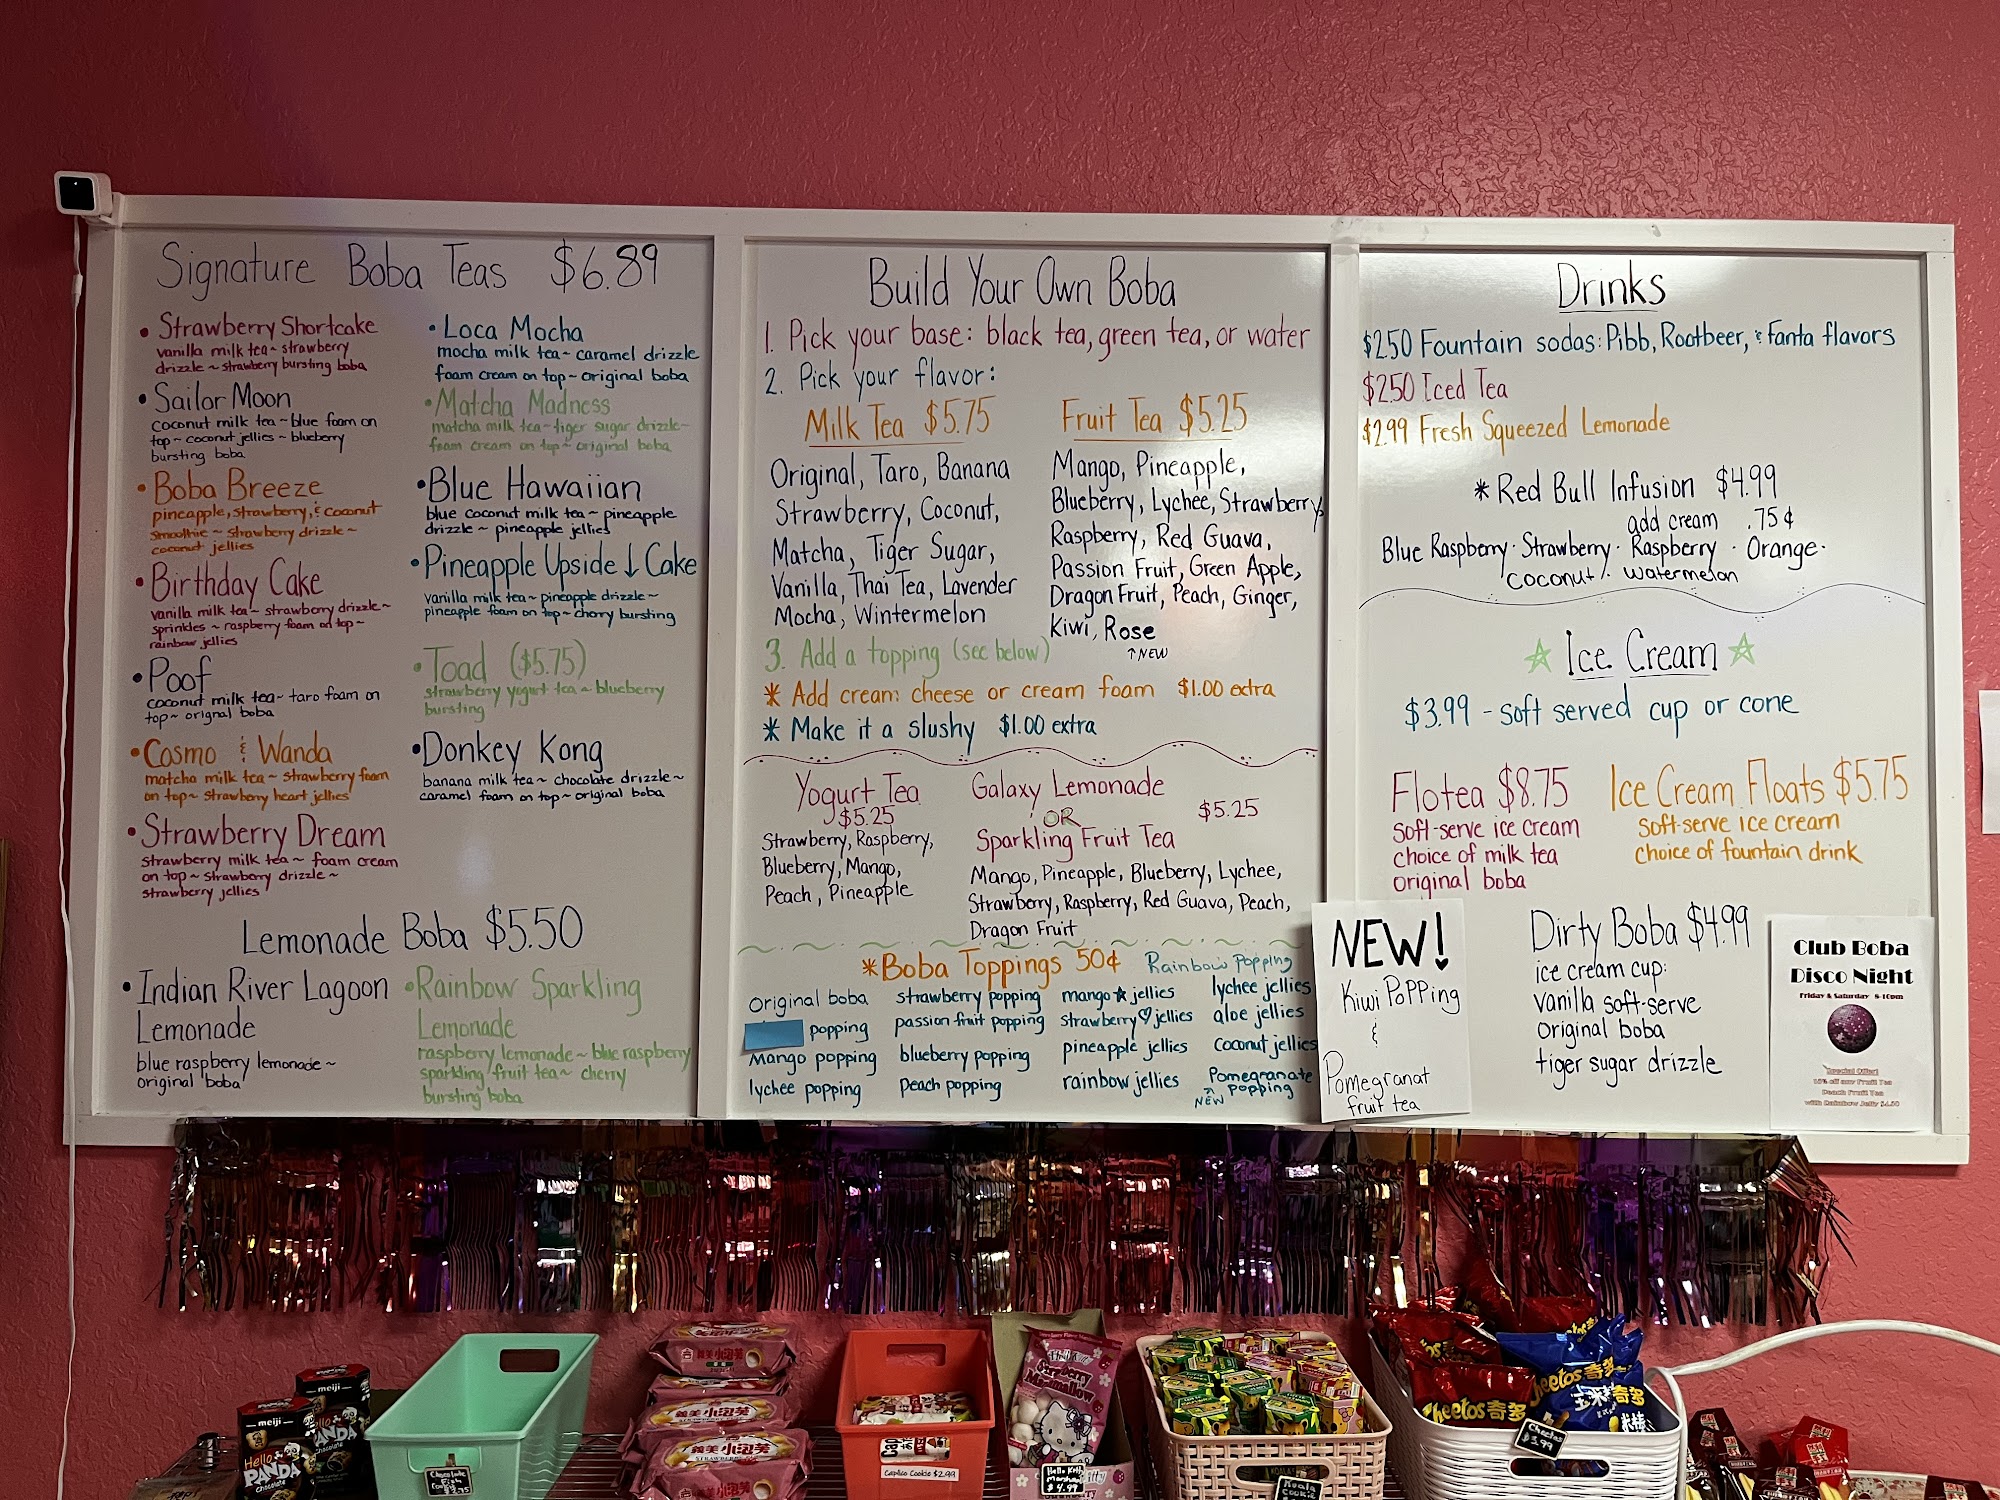 Signature Boba Teas $6.89
• Strawberry Shortcake
vanilla milk tea~strawberry
drizzle~strawberry bursting boba
• Sailor Moon
coconut milk tea~blue foam on
top~coconut jellies~blueberry
bursting boba
• Boba Breeze
pineapple, strawberry, & coconut
smoothie~strawberry drizzle~
coconut jellies
• Birthday Cake
vanilla milk tea~strawberry drizzle~
sprinkles~raspberry foam on top~
rainbow jellies
• Poof
coconut milk tea~taro foam on
top~orignal boba
• Cosmo & Wanda
matcha milk tea~strawberry foam
on top~strawberry heart jellies
• Strawberry Dream
strawberry milk tea~foam cream
on top~strawberry drizzle~
strawberry jellies
• Loca Mocha
mocha milk tea~caramel drizzle
foam cream on top~original boba
• Matcha Madness
matcha milk tea~tiger sugar drizzle~
foam cream on top~original boba
• Blue Hawaiian
blue coconut milk tea~pineapple
drizzle~pineapple jellies
• Pineapple Upside ↓ Cake
vanilla milk tea~pineapple drizzle~
pineapple foam on top~cherry bursting
• Toad ($5.75)
strawberry yogurt tea~blueberry
bursting
• Donkey Kong
banana milk tea~chocolate drizzle~
caramel foam on top~original boba
Lemonade Boba $5.50
• Indian River Lagoon
Lemonade
blue raspberry lemonade~
original boba
• Rainbow Sparkling
Lemonade
raspberry lemonade~blue raspberry
sparkling fruit tea~cherry
bursting boba
Build Your Own Boba
1. Pick your base: black tea, green tea, or water
2. Pick your flavor:
Milk Tea $5.75
Original, Taro, Banana
Strawberry, Coconut,
Matcha, Tiger Sugar,
Vanilla, Thai Tea, Lavender
Mocha, Wintermelon
Fruit Tea $5.25
Mango, Pineapple,
Blueberry, Lychee, Strawberry,
Raspberry, Red Guava,
Passion Fruit, Green Apple,
Dragon Fruit, Peach, Ginger,
Kiwi, Rose
↑NEW
3. Add a topping (see below)
* Add cream: cheese or cream foam $1.00 extra
* Make it a slushy $1.00 extra
Yogurt Tea
$5.25
Strawberry, Raspberry,
Blueberry, Mango,
Peach, Pineapple
Galaxy Lemonade
OR
$5.25
Sparkling Fruit Tea
Mango, Pineapple, Blueberry, Lychee,
Strawberry, Raspberry, Red Guava, Peach,
Dragon Fruit
*Boba Toppings 50¢
Rainbow Popping
original boba
popping
Mango popping
lychee popping
strawberry popping
passion fruit popping
blueberry popping
Peach popping
mango ★ jellies
strawberry ♡ jellies
pineapple jellies
rainbow jellies
lychee jellies
aloe jellies
coconut jellies
Pomegranate
popping
NEW
Drinks
$2.50 Fountain sodas: Pibb, Rootbeer, & Fanta flavors
$2.50 Iced Tea
$2.99 Fresh Squeezed Lemonade
* Red Bull Infusion $4.99
add cream .75¢
Blue Raspberry · Strawberry · Raspberry · Orange ·
Coconut · Watermelon
☆ Ice Cream ☆
$3.99 - soft served cup or cone
Flotea $8.75
Soft-serve ice cream
choice of milk tea
original boba
Ice Cream Floats $5.75
Soft-serve ice cream
choice of fountain drink
Dirty Boba $4.99
ice cream cup:
vanilla soft-serve
original boba
tiger sugar drizzle
NEW!
Kiwi Popping
&
Pomegranat
fruit tea
Club Boba
Disco Night
Friday & Saturday 8-10pm
Special Offer!
Peach Fruit Tea
meiji
Hello
PANDA
Chocolate
meiji
PANDA
義美小泡芙
義美小泡芙
義美小泡芙
STRAWBERRY
Caplico Cookie $2.99
Hello Kitty
Strawberry
Marshmallow
$4.99
Koala
Cookie
Cheetos奇多
Cheetos奇多
Cheetos
$3.99